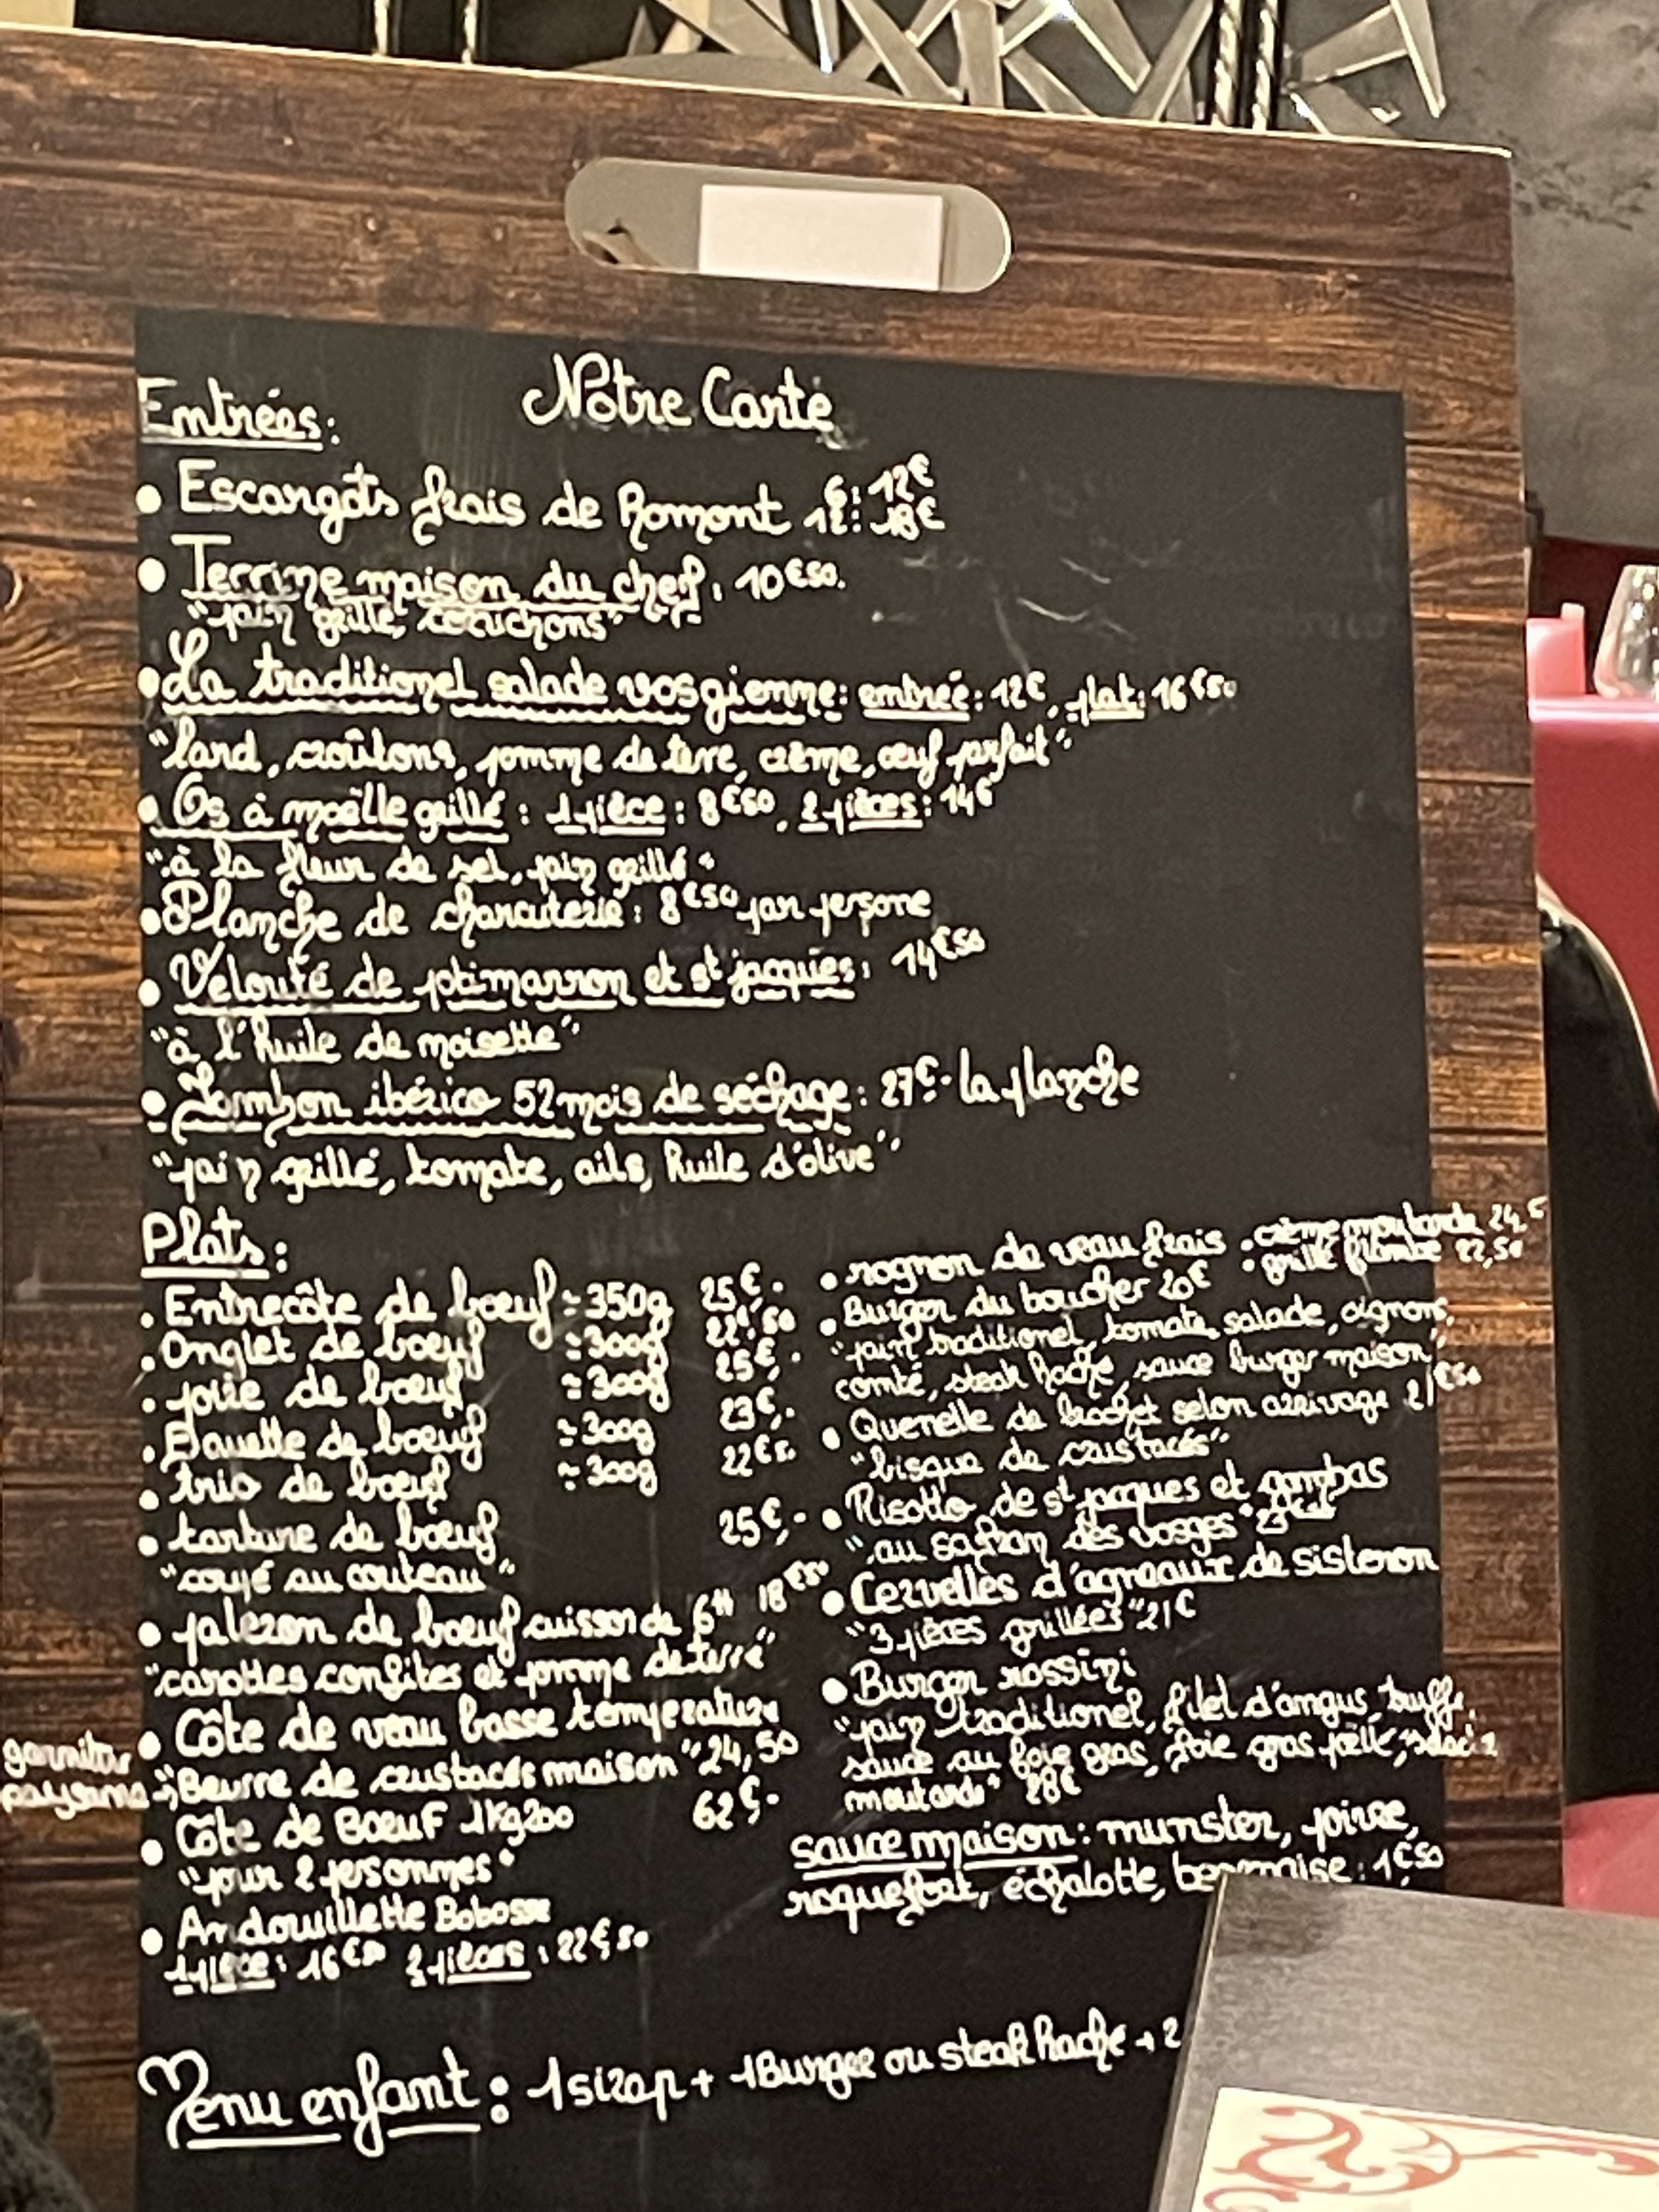 Notre Carte
Entrées:
• Escargots frais de Romont 6: 12€
12: 18€
• Terrine maison du chef: 10€50.
"pain grillé, cornichons"
• La traditionel salade vosgienne: entrée: 12€, plat: 16€50
"lard, croûtons, pomme de terre, crème, œuf parfait"
• Os à moëlle grillé: 1 pièce: 8€50, 2 pièces: 14€
"à la fleur de sel, pain grillé"
• Planche de charcuterie: 8€50 par persone
• Velouté de potimarron et st jaques: 14€50
"à l'huile de noisette"
• Jambon ibérico 52 mois de séchage: 27€.- la planche
"pain grillé, tomate, ails, huile d'olive"
Plats:
• Entrecôte de bœuf ≃ 350g 25€.-
• Onglet de bœuf ≃ 300g 22€50
• poire de bœuf ≃ 300g 25€.-
• Bavette de bœuf ≃ 300g 23€.-
• trio de bœuf ≃ 300g
• tartare de bœuf 25€.-
"coupé au couteau"
• paleron de bœuf cuisson de 6H 18€50
"carottes confites et pomme de terre"
• Côte de veau basse température
"Beurre de crustacés maison" 24,50
garnitur
paysanne
• Côte de Boeuf 1Kg200 62€.-
"pour 2 personnes"
• Andouillette Bobosse
1 pièce: 2 pièces: 22€50
• rognon de veau frais • crème moutarde 24€
• grillé flambé 22,50
• Burger du boucher 20€
"pain traditionel, tomate, salade, oignons,
comté, steak haché, sauce burger maison"
• Quenelle de brochet selon arrivage 21€50
"bisque de crustacés"
• Risotto de st jaques et gambas
"au safran des vosges"
• Cervelles d'agneaux de sisteron
"3 pièces grillées" 21€
• Burger rossini
"pain traditionel, filet d'angus, truffe,
sauce au foie gras, foie gras pôêlé,
moutarde" 28€
sauce maison: munster, poivre,
roquefort, échalotte, 1€50
Menu enfant: 1 sirop + 1 Burger ou steak haché + 2